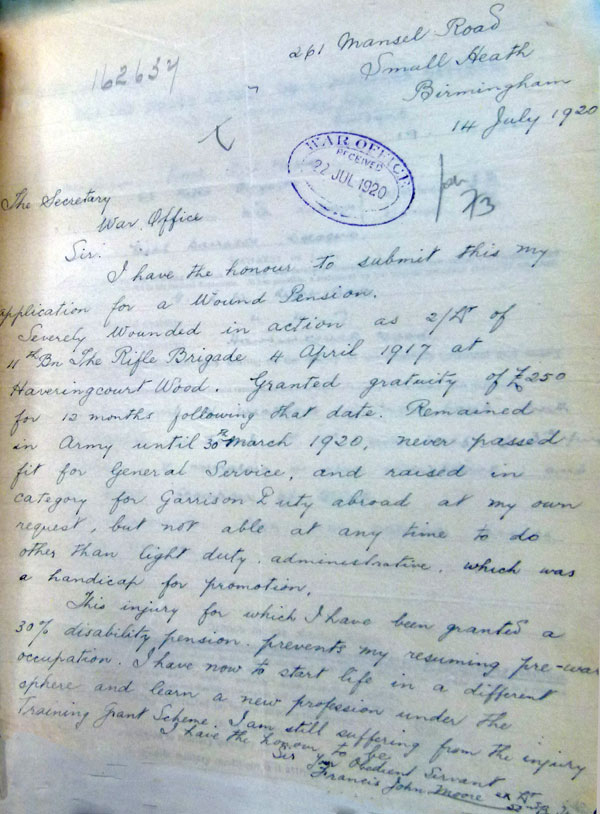 162637
261 Mansel Road
Small Heath
Birmingham
14 July 1920
WAR OFFICE
RECEIVED
22 JUL 1920
The Secretary
War Office
Sir.
I have the honour to submit this my
application for a Wound Pension.
Severely Wounded in action as 2/Lt of
11th Bn The Rifle Brigade 4 April 1917 at
Haveringcourt Wood. Granted gratuity of £250
for 12 months following that date. Remained
in Army until 30th March 1920, never passed
fit for General Service, and raised in
category for Garrison Duty abroad at my own
request, but not able at any time to do
other than light duty. administrative. which was
a handicap for promotion.
This injury for which I have been granted a
30% disability pension. prevents my resuming pre-war
occupation. I have now to start life in a different
sphere and learn a new profession under the
Training Grant Scheme. I am still suffering from the injury
I have the honour to be
Sir Your Obedient Servant
Francis John Moore